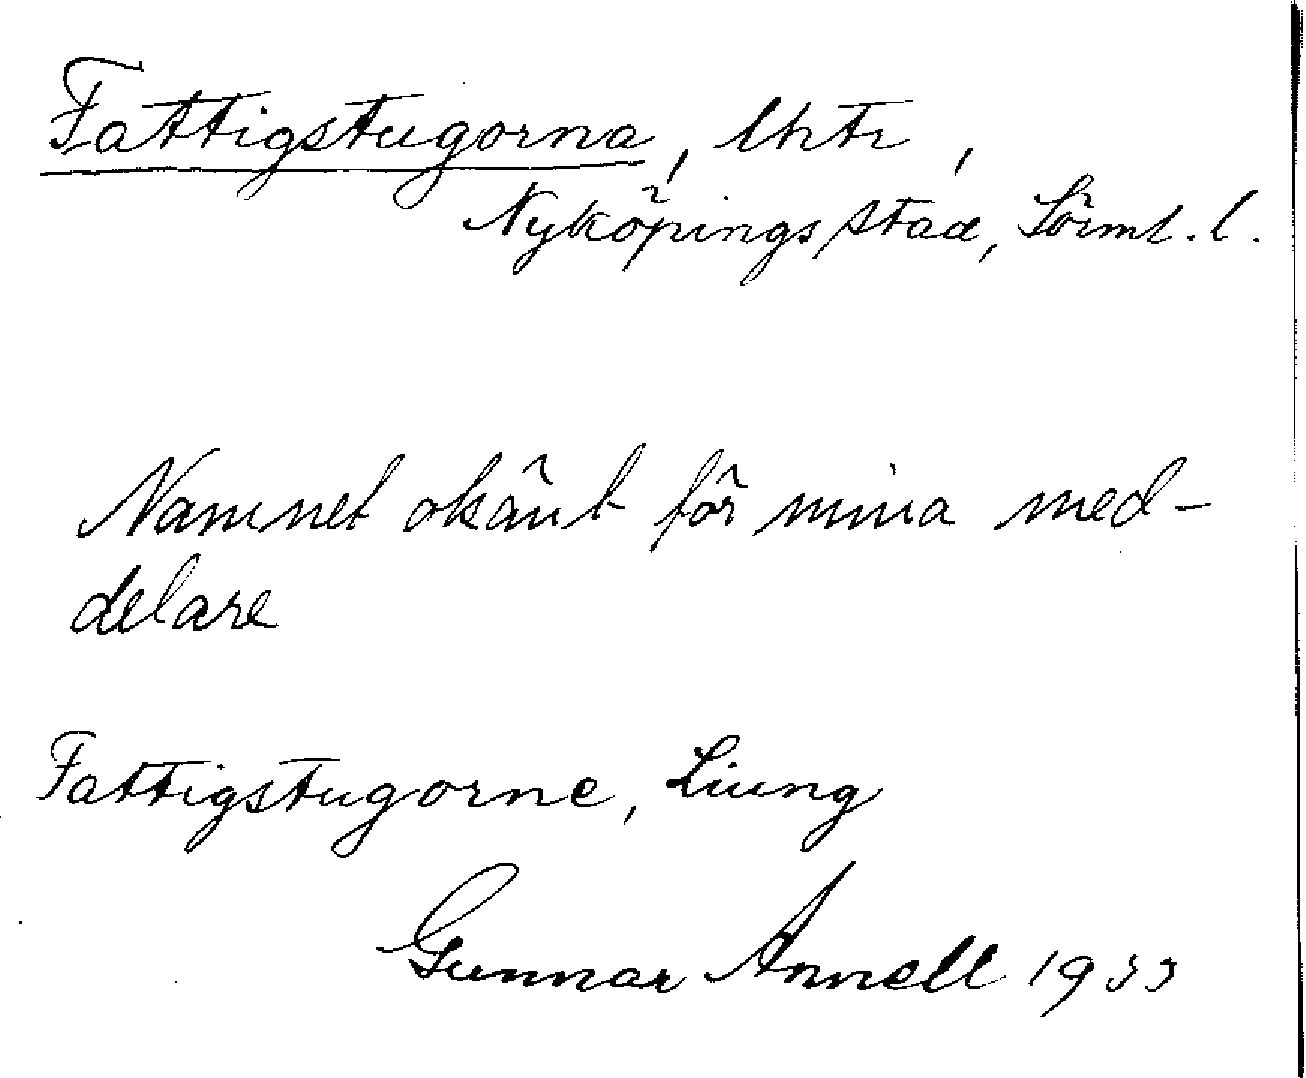 Fattigstugorna, lhtr,
Nyköpings stad, Sörml. l.
Namnet okänt för mina med-
delare
Fattigstugorne, Liung
Gunnar Annell 1933